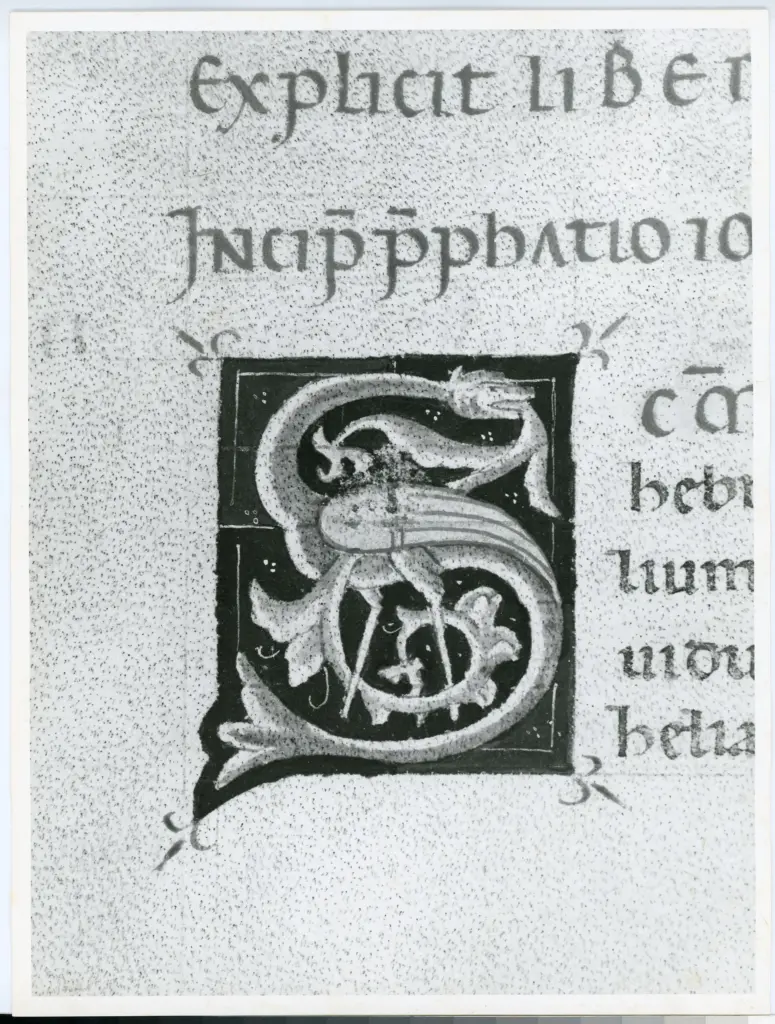 Explicit LIBER
INCIP̄ P̄PHATIO IO
S
C̄M
hebr
lium
uidu
helia